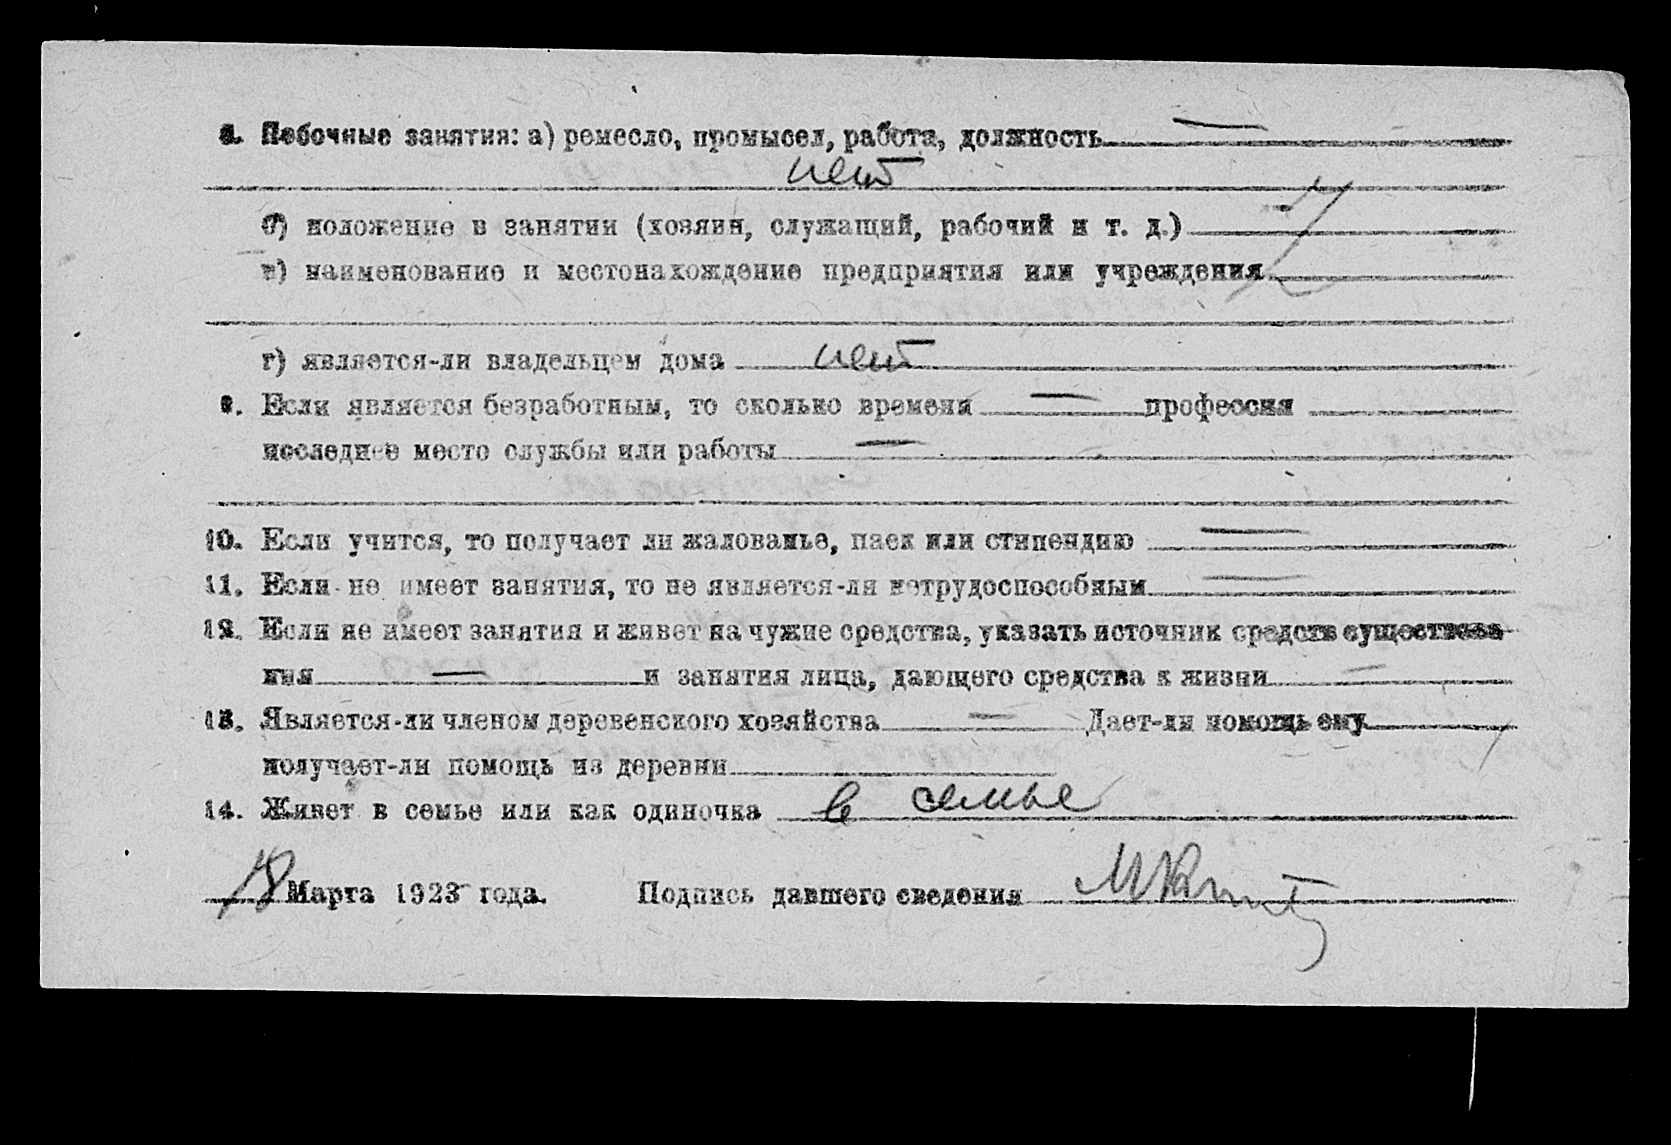 8. Побочные занятия: а) ремесло, промысел, работа, должность —
нет
б) положение в занятии (хозяин, служащий, рабочий и т. д.)
в) наименование и местонахождение предприятия или учреждения
г) является-ли владельцем дома нет
9. Если является безработным, то сколько времени — профессия
последнее место службы или работы —
10. Если учится, то получает ли жалованье, паек или стипендию —
11. Если не имеет занятия, то не является-ли нетрудоспособным —
12. Если не имеет занятия и живет на чужие средства, указать источник средств существова-
ния — и занятия лица, дающего средства к жизни —
13. Является-ли членом деревенского хозяйства — Дает-ли помощь ему
получает-ли помощь из деревни
14. Живет в семье или как одиночка в семье
18 Марта 1923 года. Подпись давшего сведения